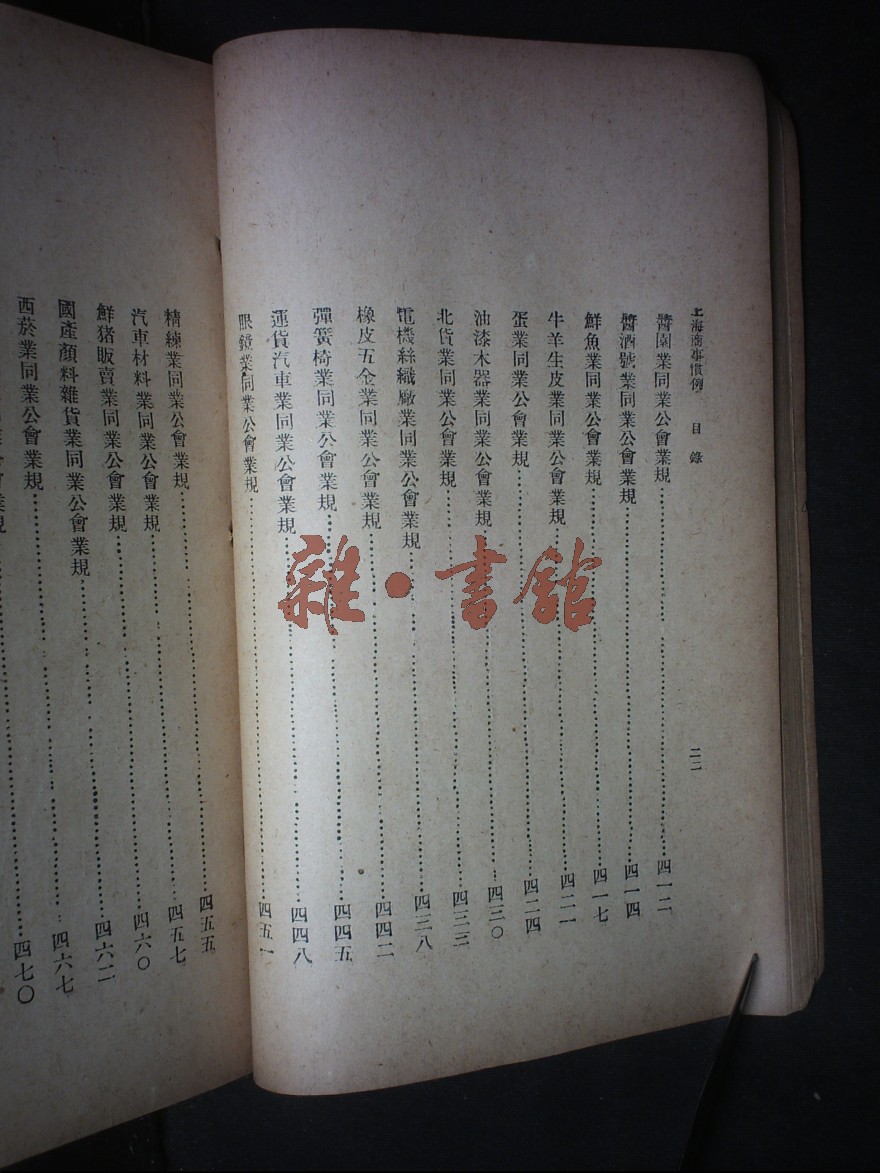 上海商事慣例 目錄 二二
醬園業同業公會業規……四一二
醬酒號業同業公會業規……四一四
鮮魚業同業公會業規……四一七
牛羊生皮業同業公會業規……四二一
蛋業同業公會業規……四二四
油漆木器業同業公會業規……四三〇
北貨業同業公會業規……四三三
電機絲織廠業同業公會業規……四三八
橡皮五金業同業公會業規……四四二
彈簧椅業同業公會業規……四四五
運貨汽車業同業公會業規……四四八
眼鏡業同業公會業規……四五一
精練業同業公會業規……四五五
汽車材料業同業公會業規……四五七
鮮猪販賣業同業公會業規……四六〇
國產顏料雜貨業同業公會業規……四六二
西菸業同業公會業規……四六七
會業規……四七〇
雜·書館